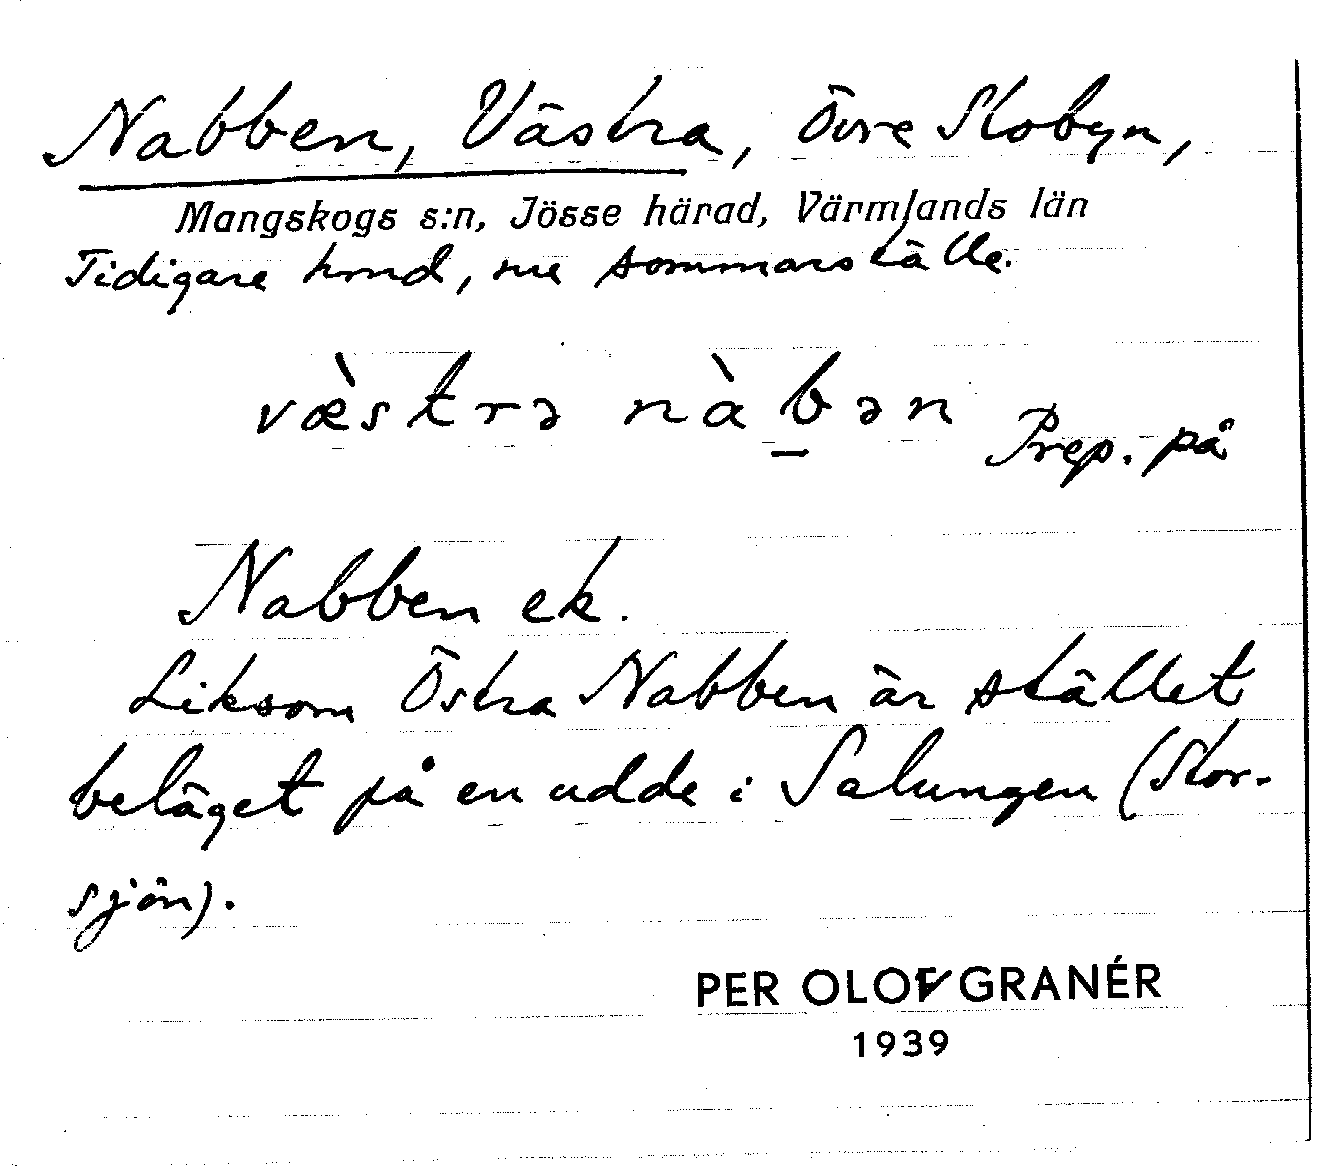 Nabben, Västra, Övre Skobyn,
Mangskogs s:n, Jösse härad, Värmlands län
Tidigare hmd, nu sommarställe.
væ̀strə nàb̲ən Prep. på
Nabben ek.
Liksom Östra Nabben är stället
beläget på en udde i Salungen (Stor-
sjön).
PER OLOF GRANÉR
1939